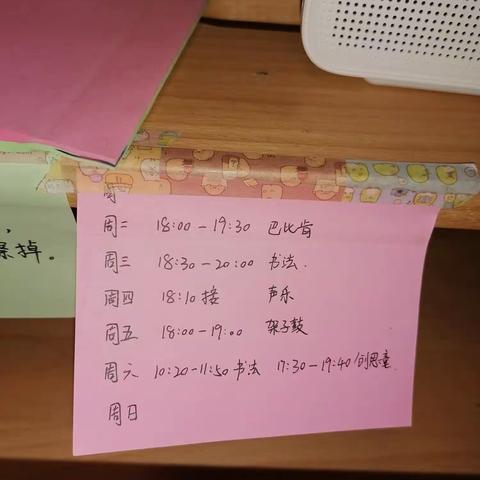 周
周二 18:00-19:30 巴比肯
周三 18:30-20:00 书法.
周四 18:10接 声乐
周五 18:00-19:00 架子鼓
周六 10:20-11:50书法 17:30-19:40创思童.
周日
掉。